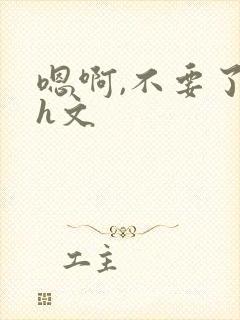 嗯啊,不要了
h文
工主